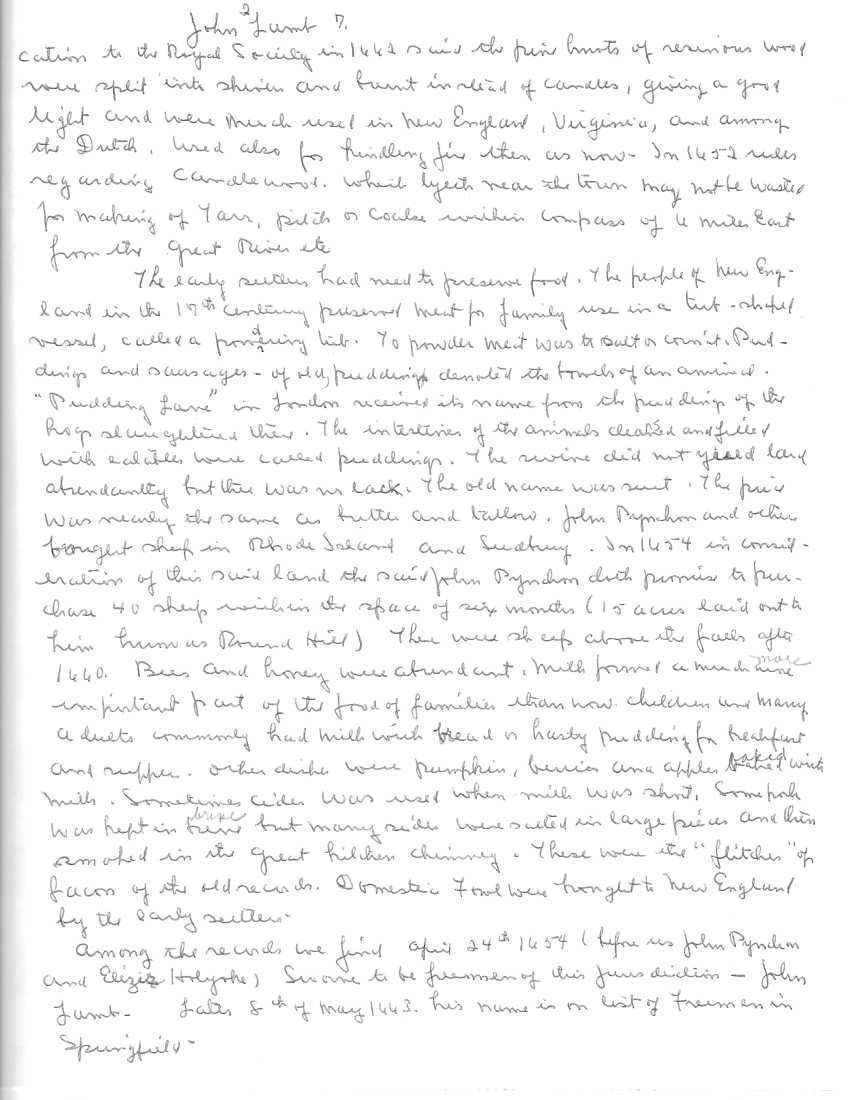 John² Lumb 7.
cation to the Royal Society in 1662 said the pine knots of resinous wood
were split into shivers and burnt instead of candles, giving a good
light and were much used in New England, Virginia, and among
the Dutch. Used also for kindling fire then as now - In 1652 rules
regarding Candlewood. which lyeth near the town may not be wasted
for making of Tarr, pitch or Coales within compass of 6 miles East
from the Great River etc
The early settlers had need to preserve food. The people of New Eng-
land in the 17th century preserved meat for family use in a tub-shaped
vessel, called a powdering tub. To powder meat was to salt or corn it. Pud-
dings and sausages - of old, puddings denoted the bowels of an animal.
"Pudding Lane" in London received its name from the puddings of the
hogs slaughtered there. The intestines of the animals cleansed and filled
with eatables were called puddings. The swine did not yield lard
abundantly but there was no lack. The old name was suet. The price
was nearly the same as butter and tallow. John Pynchon and others
bought sheep in Rhode Island and Sudbury. In 1654 in consid-
eration of this said land the said John Pynchon doth promise to pur-
chase 40 sheep within the space of six months (15 acres laid out to
him known as Round Hill) There were sheep above the falls after
1660. Bees and honey were abundant. Milk formed a much more
important part of the food of families than now. Children and many
adults commonly had milk with bread or hasty pudding for breakfast
and supper. Other dishes were pumpkin, berries and apples baked with
milk. Sometimes cider was used when milk was short. Some pork
was kept in brine but many sides were salted in large pieces and then
smoked in the great kitchen chimney. These were the "flitches" of
bacon of the old records. Domestic Fowl were brought to New England
by the early settlers -
Among the records we find April 24th 1654 (before us John Pynchon
and Elizir Holyoke) Sworne to be freemen of this Jurisdiction - John
Lumb - Later 8th of May 1663. his name is on list of Freemen in
Springfield -